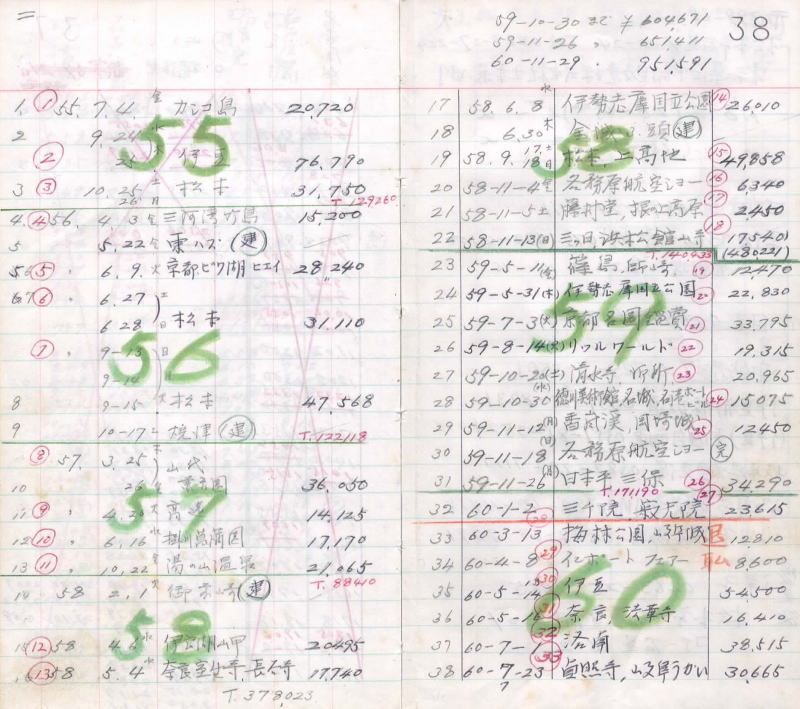 59-10-30まで ¥604671
59-11-26 〃 651,411
60-11-29. 951591
38
1 ① 55. 7. 4 金 カシコ島 20,720
2 9. 24 水
② 25 木 伊 76,790
3 ③ 10. 25 土 松本 31,750
26 日 T. 129260
4. ④ 56. 4. 3 金 三河湾竹島 15,200
5 5. 22 金 東ハズ (建)
5 6 ⑤ 〃 6. 9. 火 京都ビワ湖ヒエイ 28,240
6 7 ⑥ 〃 6. 27 土
6 28 日 松本 31,110
⑦ 〃 9-13 日
9-14
8 9-15 火 松本 47,568
9 10-17 土 焼津 (建) T. 122118
55
56
⑧ 57. 3. 25 木 山代
10 26 金 36,050
11 ⑨ 〃 4. 20 火 高 14,125
12 ⑩ 〃 6. 16 水 掛川菖蒲園 17,170
13 ⑪ 〃 10. 22 金 湯の山温泉 21,065
T. 88410
14 58 2. 1 火 御前崎 (建)
15 ⑫ 58 4. 6 水 伊 20495
16 ⑬ 58 5. 4 水 奈良室生寺, 長谷寺 17740
T. 378,023
57
58
17 58. 6. 8 水 伊勢志摩国立公園 ⑭ 26010
18 6. 30 木 (建)
19 58. 9. 17. 土 18 日 松本 上高地 ⑮ 49,858
20 58-11-4 金 各務原航空ショー ⑯ 6340
21 58-11-5 土 藤村堂, 根の上高原 ⑰ 2450
22 58-11-13 (日) 三ヶ日, 浜松舘山寺 ⑱ 17,540
T. 140433 (480221)
23 59-5-11 (金) 篠島, 師崎 ⑲ 12,470
24 59-5-31 (木) 伊勢志摩国立公園 ⑳ 22,830
25 59-7-3 (火) 京都 ㉑ 33,795
26 59-8-14 (火) リトルワールド ㉒ 19.315
27 59-10-20 (土) 清水寺 御所 ㉓ 20,965
28 59-10-30 (火) 徳川美術館, 名城, 名港ポートビル ㉔ 15075
29 59-11-12 (月) 香嵐渓, 岡崎城 ㉕ 12450
30 59-11-18 (日) 各務原航空ショー (完)
31 59-11-26 (月) 日本平 三保 ㉖ 34,290
T. 171190
32 60-1-2 三千院 寂光院 ㉗ 23,615
33 60-3-13 ㉘ 梅林公園, 岐阜城 12,810
退
払
34 60-4-8 ㉙ インポートフェアー 8,600
35 60-5-14 ㉚ 伊豆 54,500
36 60-5-16 ㉛ 奈良, 法華寺 16,410
37 60-7-1 ㉜ 洛南 38,515
38 60-7-23 ㉝ 貞照寺, 岐阜うかい 30,665
7
58
59
60